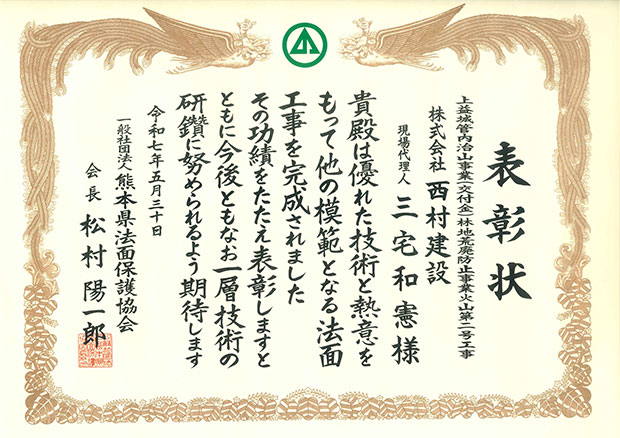 表彰状
上益城管内治山事業(交付金)林地荒廃防止事業火山第二号工事
株式会社 西村建設
現場代理人 三宅和憲様
貴殿は優れた技術と熱意を
もって他の模範となる法面
工事を完成されました
その功績をたたえ表彰しますと
ともに今後ともなお一層技術の
研鑽に努められるよう期待します
令和七年五月三十日
一般社団法人 熊本県法面保護協会
会長 松村陽一郎